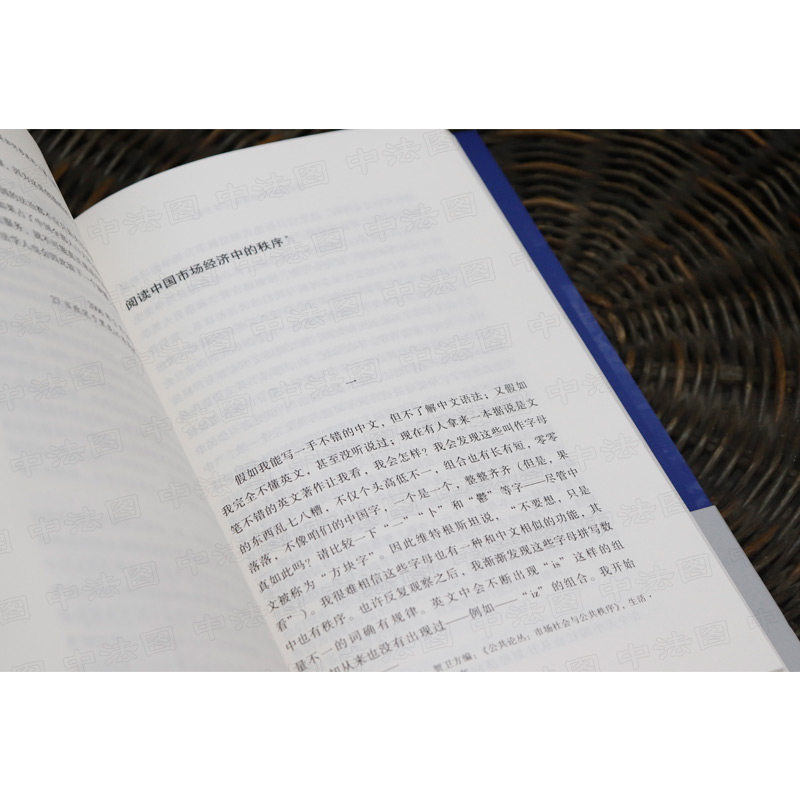 阅读中国市场经济中的秩序*
一
假如我能写一手不错的中文，但不了解中文语法；又假如
我完全不懂英文，甚至没听说过；现在有人拿来一本据说是文
笔不错的英文著作让我看，我会怎样？我会发现这些叫作字母
的东西乱七八糟，不仅个头高低不一，组合也有长有短，零零
落落，不像咱们的中国字，一个是一个，整整齐齐（但是，果
真如此吗？请比较一下“一”“卜”和“鬱”等字——尽管中
文被称为“方块字”）。因此维特根斯坦说，“不要想，只是
看”）。我很难相信这些字母也有一种和中文相似的功能，其
中也有秩序。也许反复观察之后，我渐渐发现这些字母拼写数
量不一的词确有规律。英文中会不断出现“is”这样的组
却从来也没有出现过——例如——“iz”的组合。我开始
贺卫方编：《公共论丛：市场社会与公共秩序》，生活·
中法图